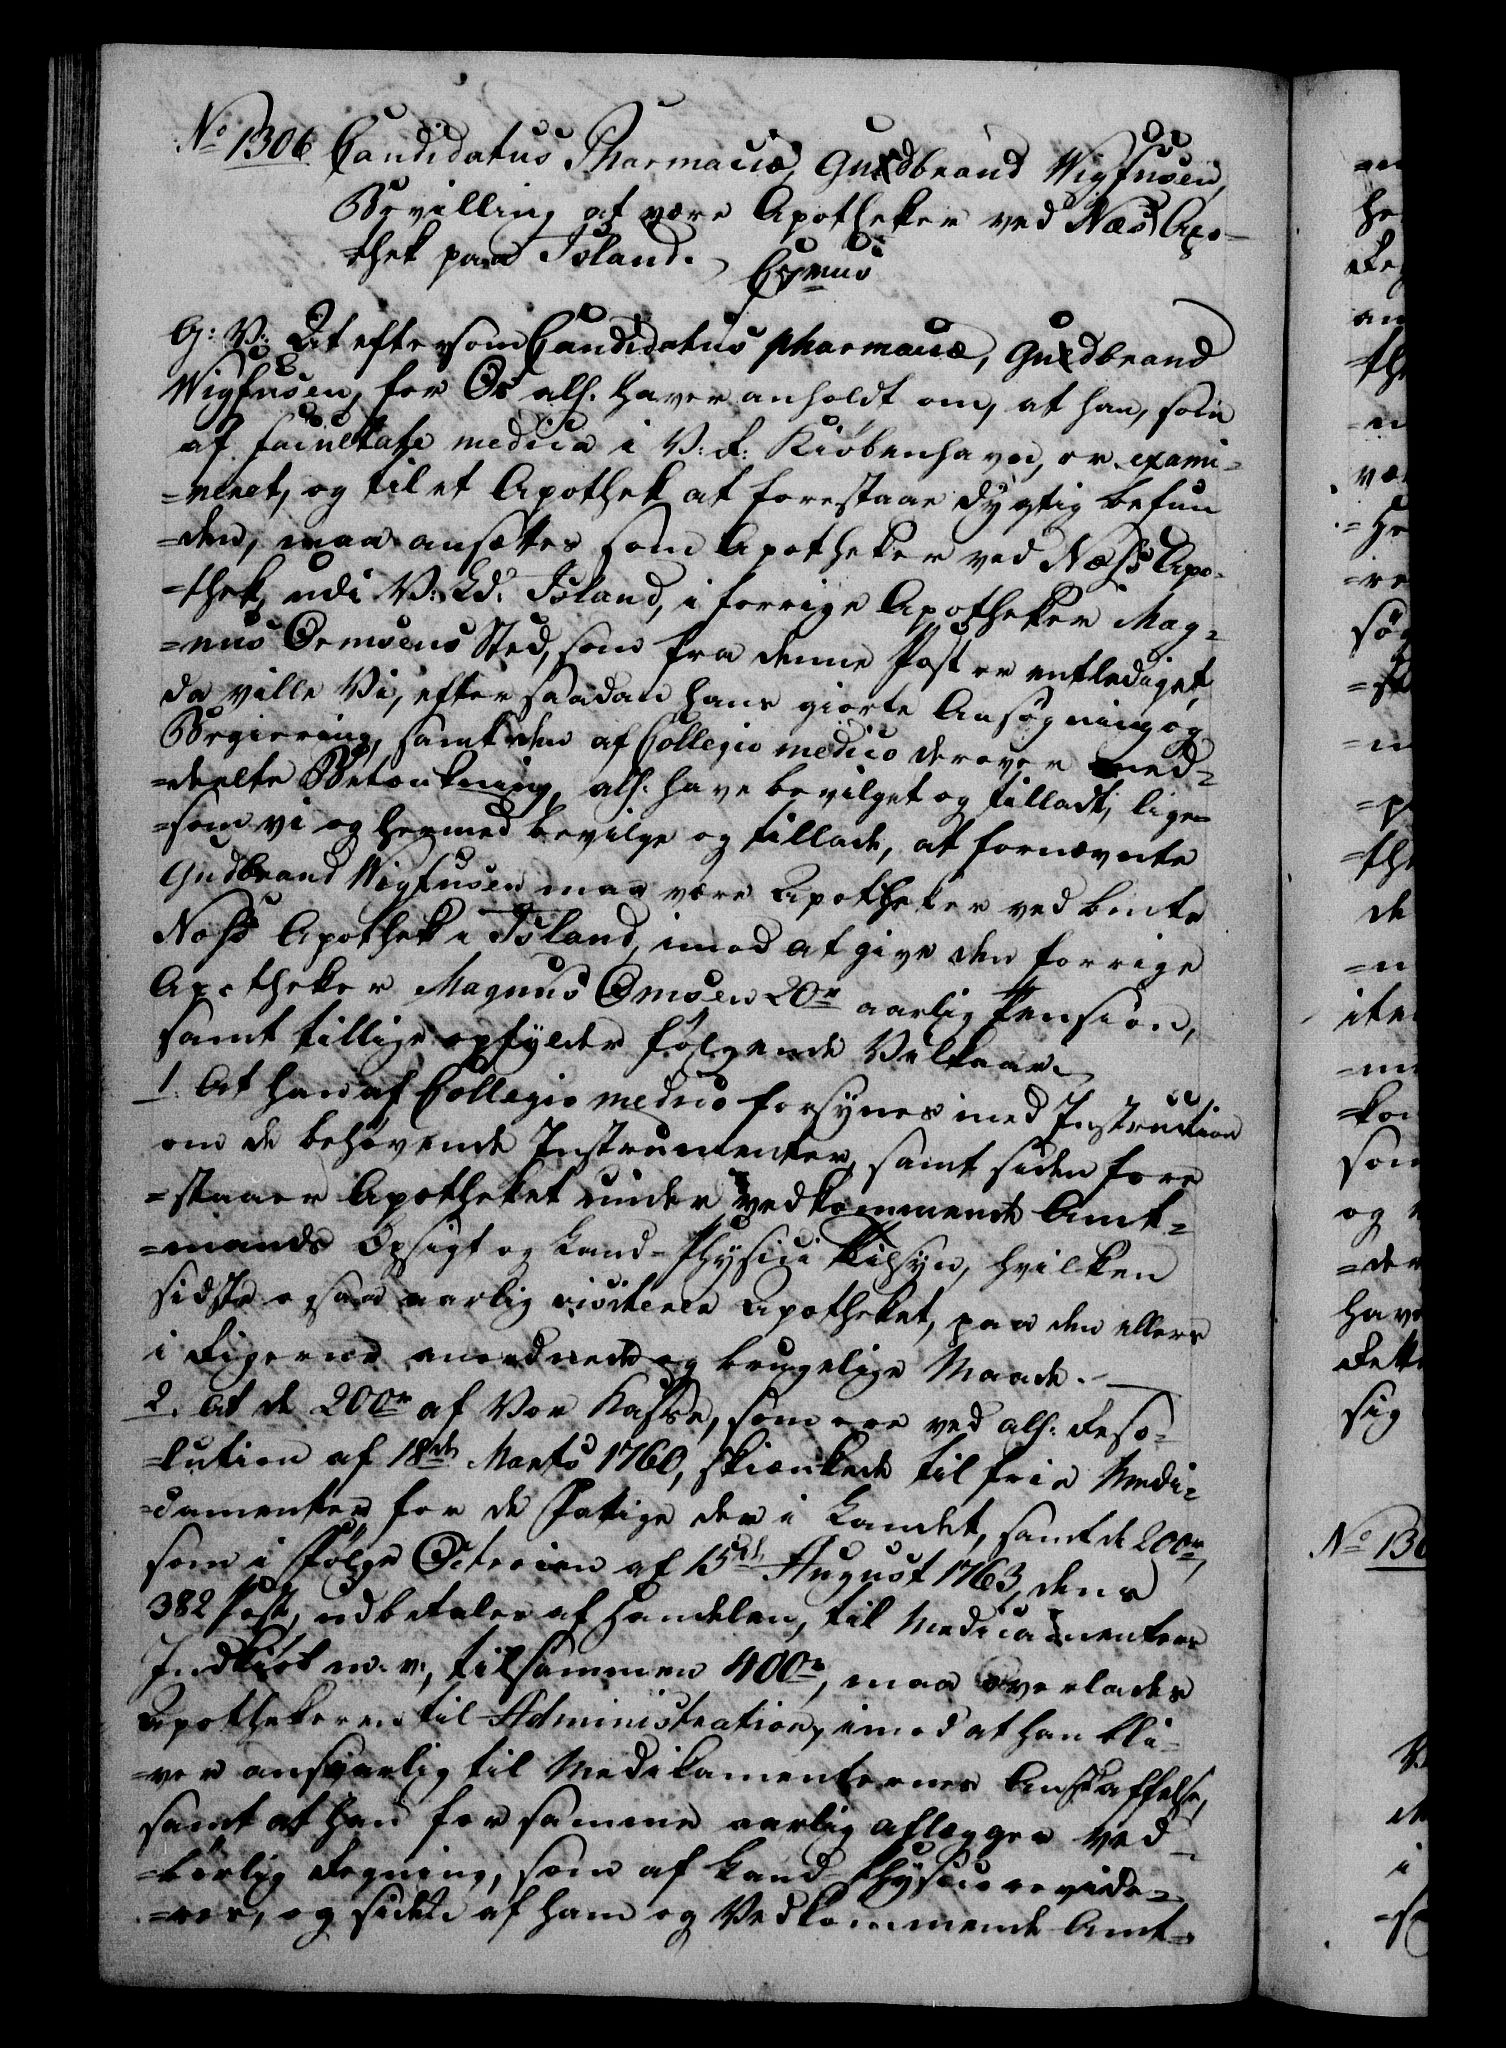 No 1306 Candidatus Pharmaciæ, Gudbrand Wigfusen,
Bevilling at være Apotheker ved Næs Apo-
thek paa Island.
G: V: At eftersom Candidatus pharmaciæ, Gudbrand
Wigfusen, for Os allh. haver anholdt om, at han, som
af facultate medica i V: K: Kiøbenhavn, er exami-
=neret, og til et Apothek at forestaae dygtig befun
=den, maa ansættes som Apotheker ved Næss Apo-
=thek, udi V: Ld: Island, i forrige Apotheker Mag-
=nus Ormsens Sted, som fra denne Post er entlediget,
da ville Vi, efter saadan hans giorte Ansøgning og
Begiering, samt den af Collegio medico derover med-
=deelte Betænkning, allh. have bevilget og tilladt, lige-
=som vi og hermed bevilge og tillade, at fornævnte
Gudbrand Wigfusen maa være Apotheker ved bemte
Næss Apothek i Island, imod at give den forrige
Apotheker Magnus Ormsen 20r aarlig Pension,
samt tillige opfylder følgende Vilkaar
1. At han af Collegio medico forsynes med Instruction
om de behøvende Instrumenter, samt siden fore
=staaer Apotheket under vedkommende Amt-
=mands Opsigt og Land-Physici Tilsyn, hvilken
sidste ogsaa aarlig visiterer Apotheket, paa den ellers
i Rigerne anordnede og brugelige Maade.
2. At de 200r af Vor Kasse, som ere ved allh. Reso-
-lution af 18de Marts 1760, skiænkede til frie Medi-
-camenter for de Fattige der i Landet, samt de 200r,
som i Følge Octroien af 15de August 1763, dens
382 Post, udbetales af Handelen, til Medicamenters
Indkiøb m: v:, tilsammen 400r, maa overlades
Apothekeren til Administration, imod at han bli-
=ver ansvarlig til Medikamenternes Anskaffelse,
samt at han for samme aarlig aflægger ved-
=børlig Regning, som af Land-Physico revide-
=res, og siden af ham og Vedkommende Amt-